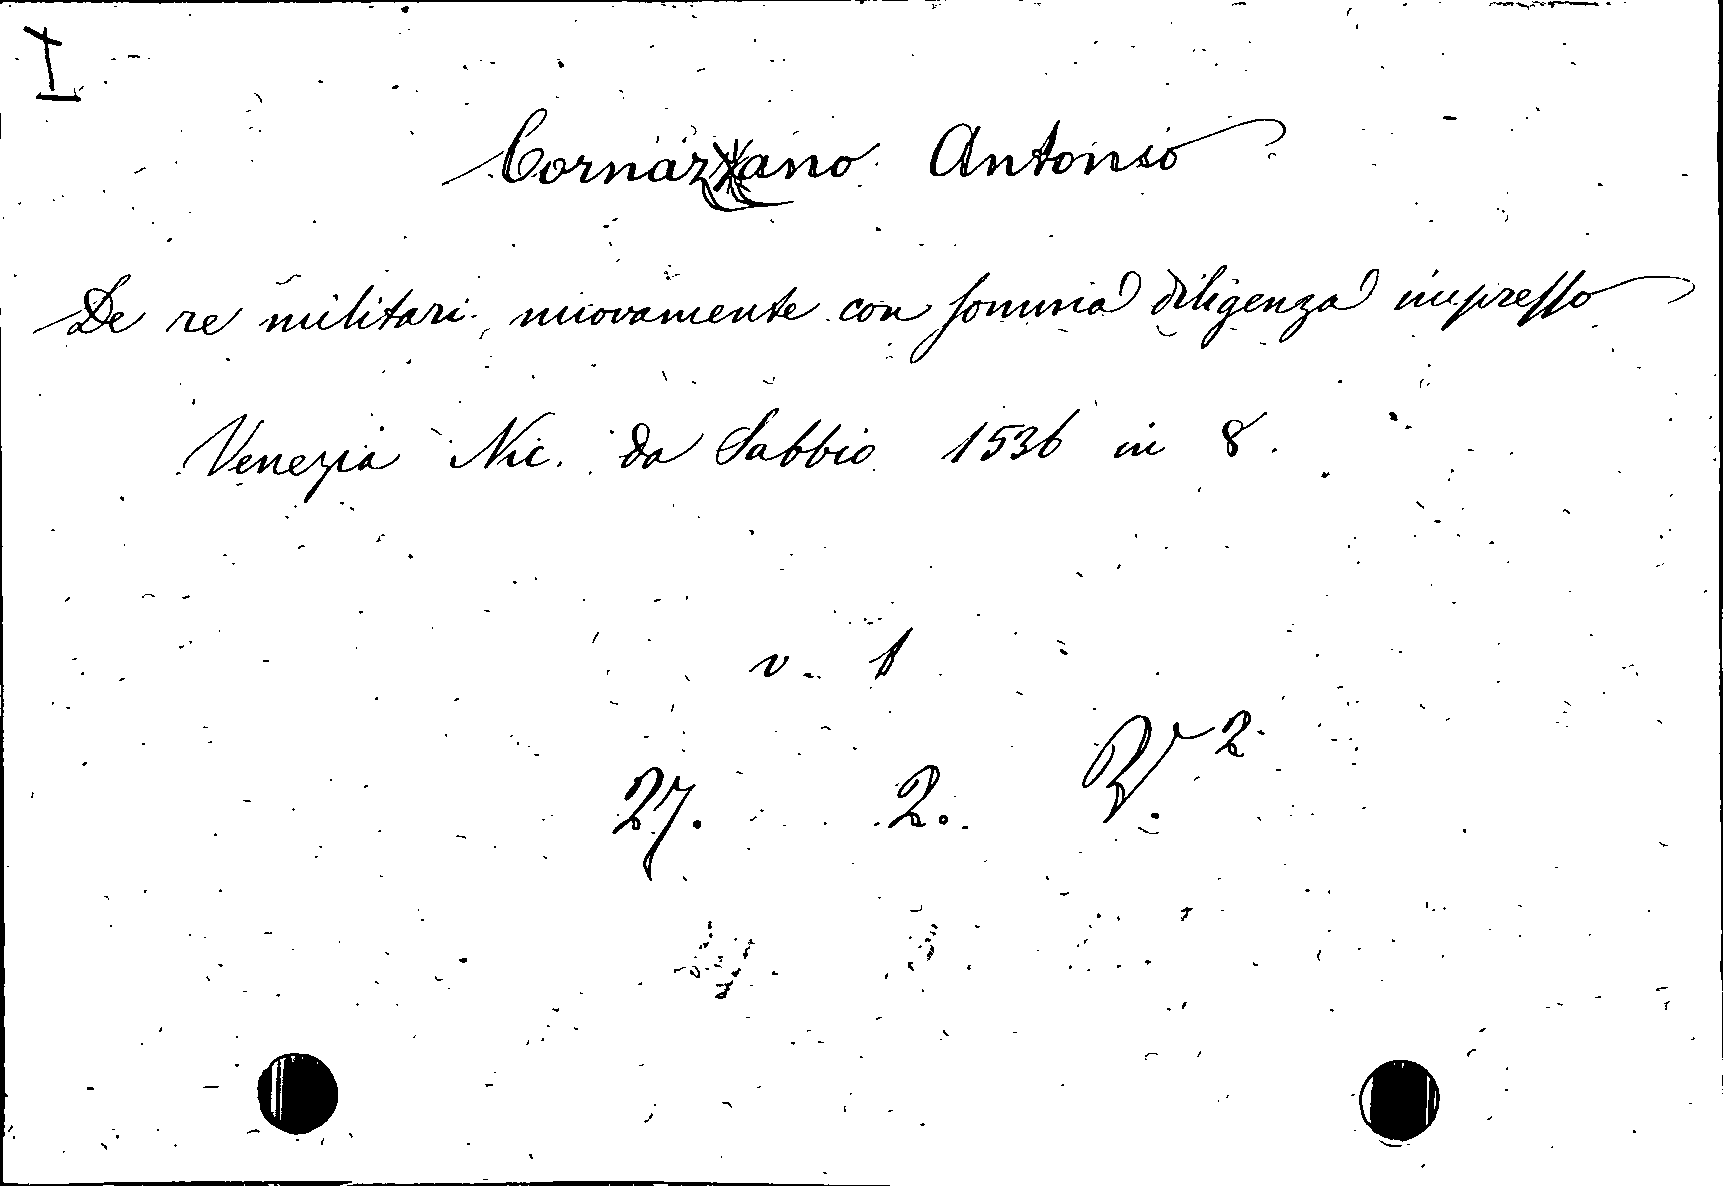 I
Cornazzano Antonio
De re militari nuovamente con somma diligenza impresso
Venezia Nic. da Sabbio 1536 in 8.
v. 1
27. 2. V. 2.